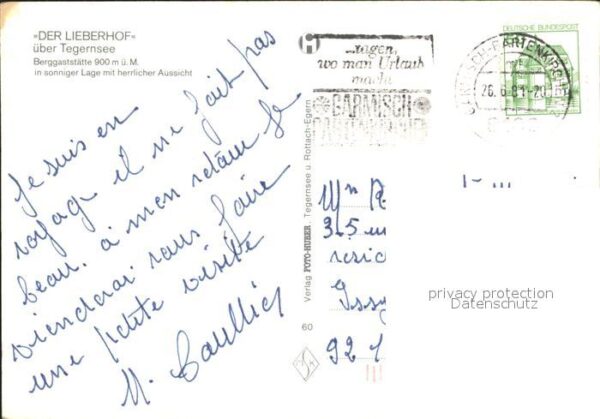 »DER LIEBERHOF«
über Tegernsee
Berggaststätte 900 m ü. M.
in sonniger Lage mit herrlicher Aussicht
Je suis en
voyage il ne fait pas
beau. à mon retour je
viendrai vous faire
une petite visite
M.
Verlag FOTO-HUBER, Tegernsee u. Rottach-Egern
60
...sagen,
wo man Urlaub
macht
GARMISCH
PARTENKIRCHEN
DEUTSCHE BUNDESPOST
GARMISCH-PARTENKIRCHEN
26.6.81-20
8100
Mm
3-5
resid
Issy
92 1
privacy protection
Datenschutz